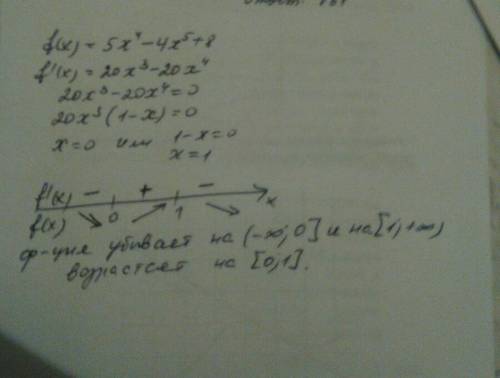 f(x) = 5x⁴ - 4x⁵ + 8
f'(x) = 20x³ - 20x⁴
20x³ - 20x⁴ = 0
20x³(1-x) = 0
x = 0 или 1-x = 0
x = 1
f'(x) - + -
0 1 x
f(x) ↘ ↗ ↘
ф-ция убывает на (-∞; 0] и на [1, +∞)
возрастает на [0, 1].